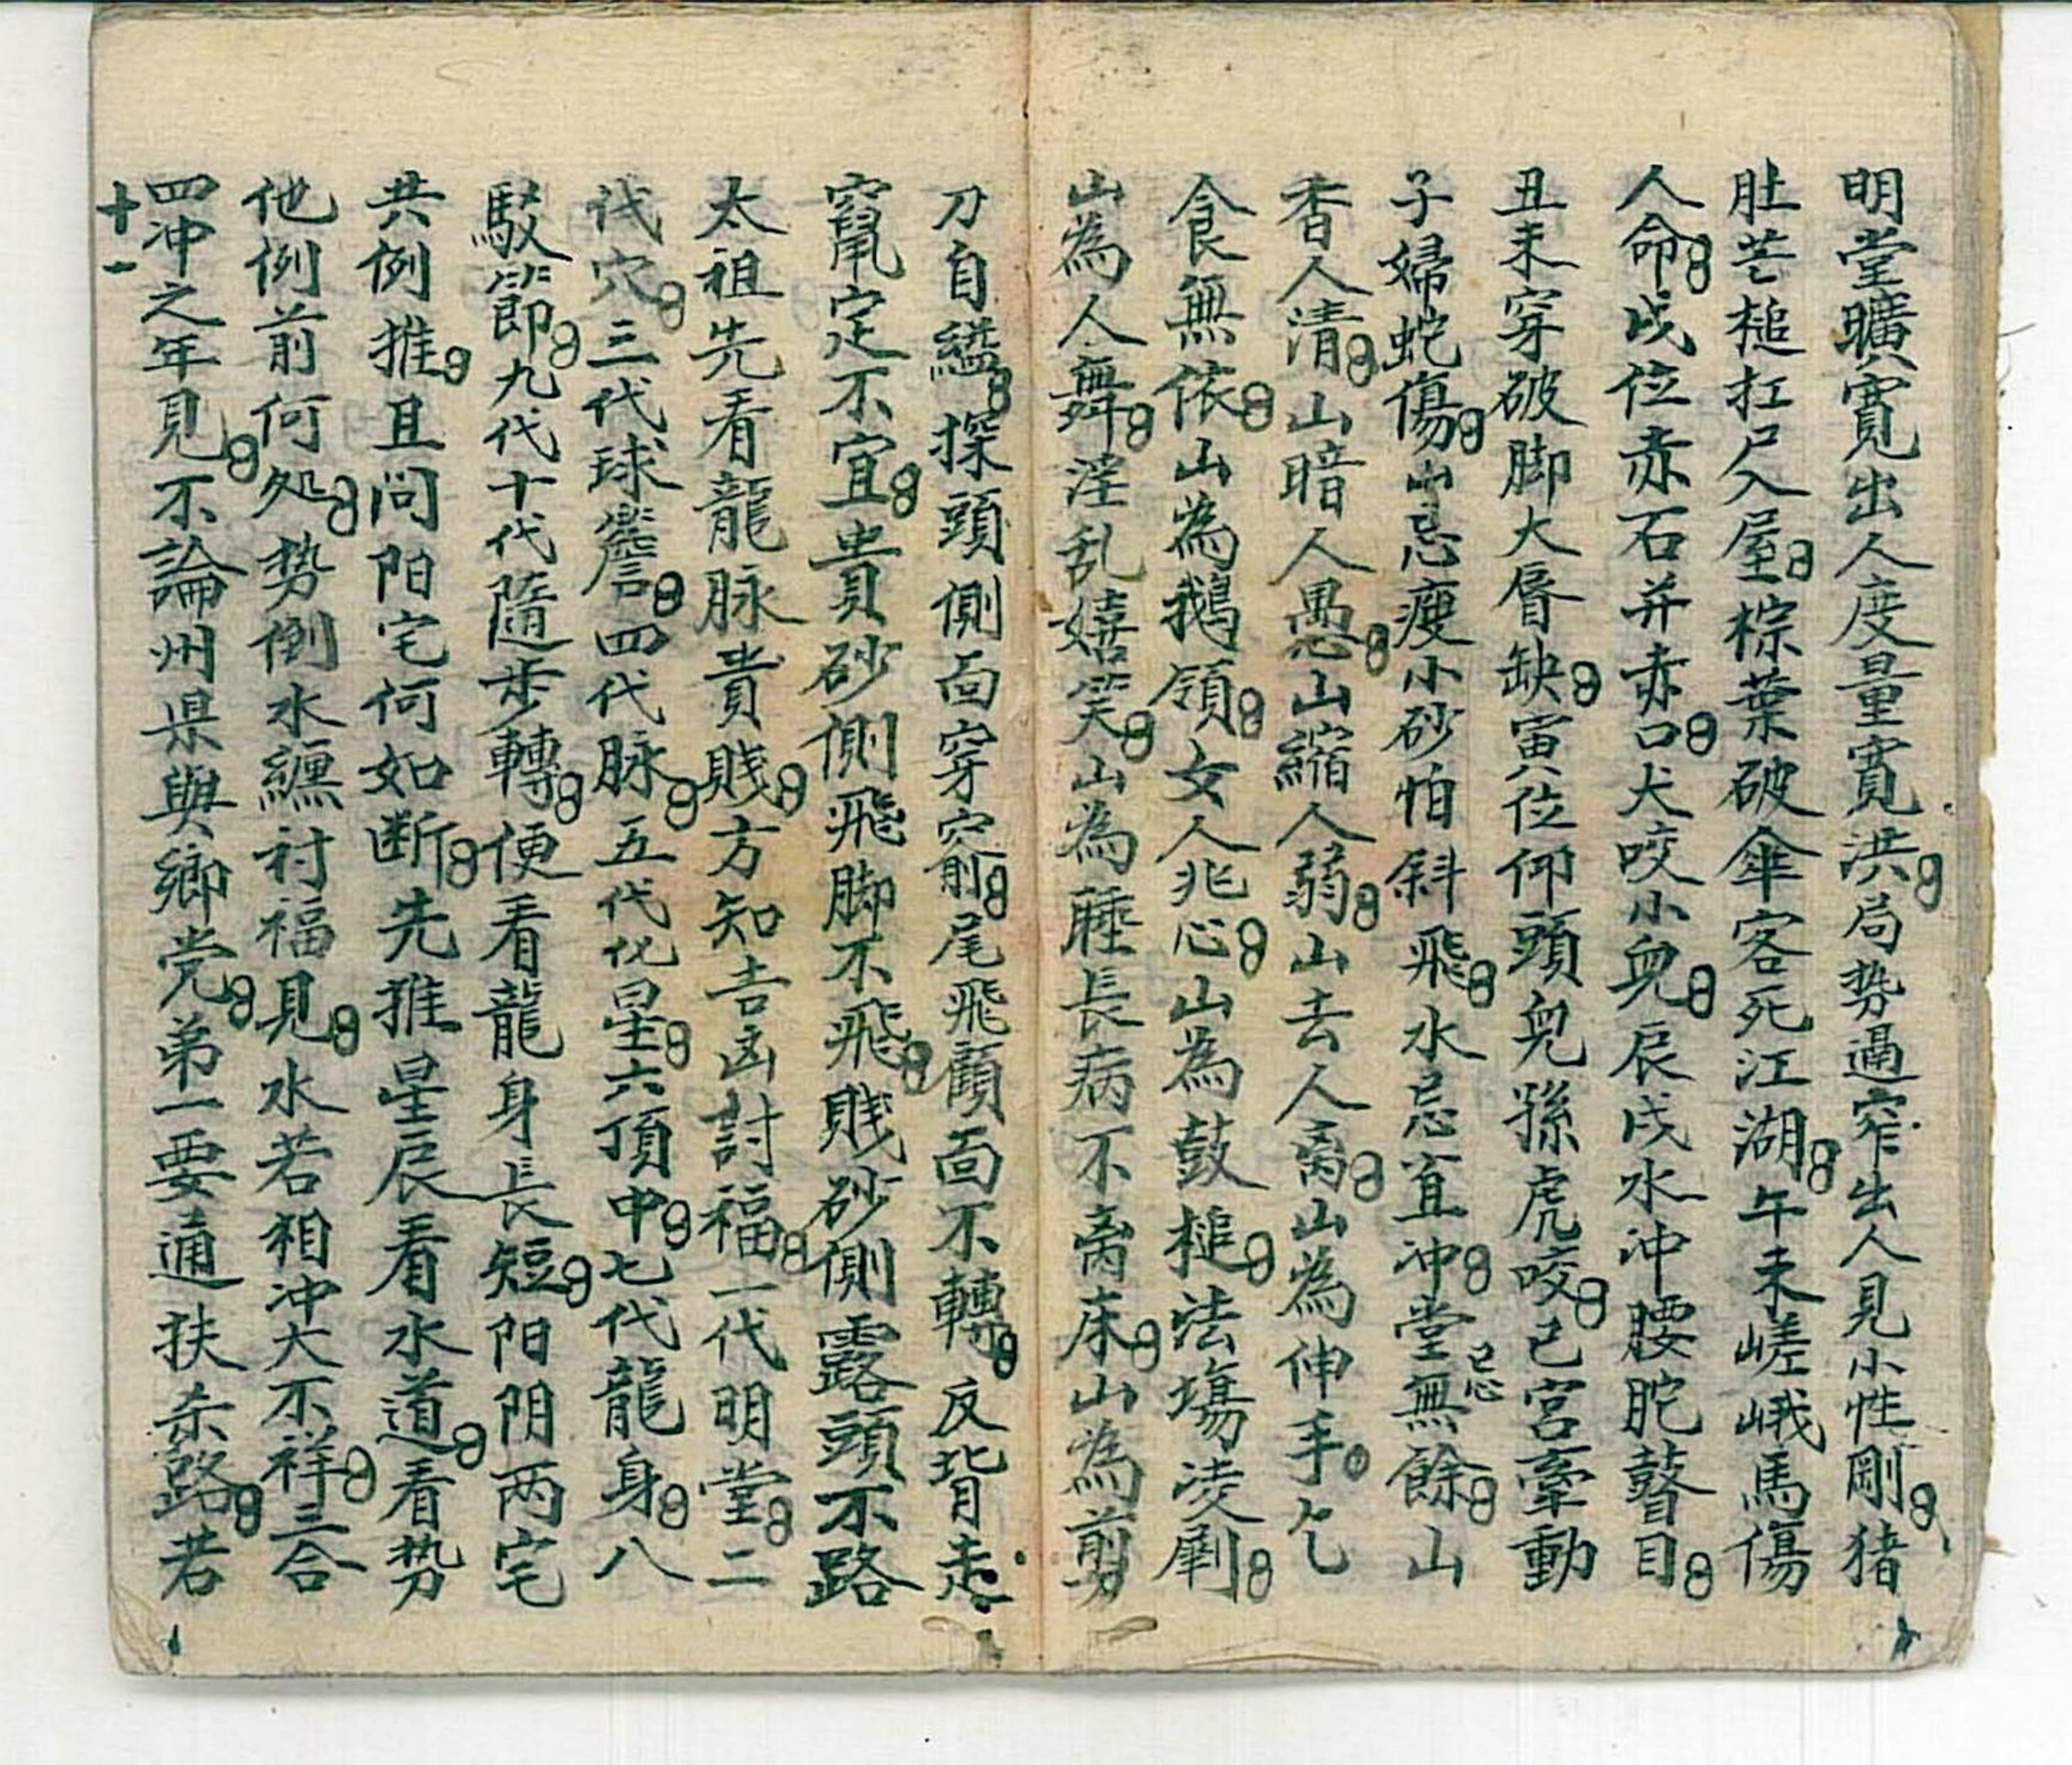 明堂曠寬出人度量寬洪局势逼窄出人見小性剛猪
肚芒槌扛尸入屋棕葉破傘客死江湖午未嵯峨馬傷
人命戌位赤石并赤口犬咬小兒辰戌水冲腰脫瞽目
丑未穿破脚大唇缺寅位仰頭兒孫虎咬巳宮牽動
子婦蛇傷山忌瘦小砂怕斜飛水忌直冲堂忌無餘山
香人清山暗人愚山縮人弱山去人离山為伸手乞
食無依山為鵝領女人兆心山為鼓槌法場凌剮
山為人舞淫乱嬉笑山為睡長病不离床山為剪
刀自縊探頭側面穿窬尾飛顧面不轉反背走
竄定不宜貴砂側飛脚不飛賤砂側露頭不路
太祖先看龍脉貴賤方知吉凶討福一代明堂二
代穴三代球簷四代脉五代化星六頂中七代龍身八
駁節九代十代隨步轉便看龍身長短阳阴两宅
共例推且问阳宅何如断先推星辰看水道看势
他例前何処势倒水纏討福見水若相冲大不祥三合
四冲之年見不論州県與鄉党弟一要通扶杀路若
十一